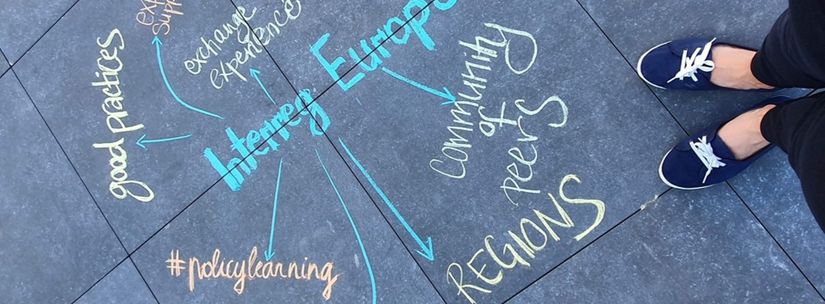 exchange
experience
good practices
Interreg Europe
Community
of
peers
REGIONS
#policylearning